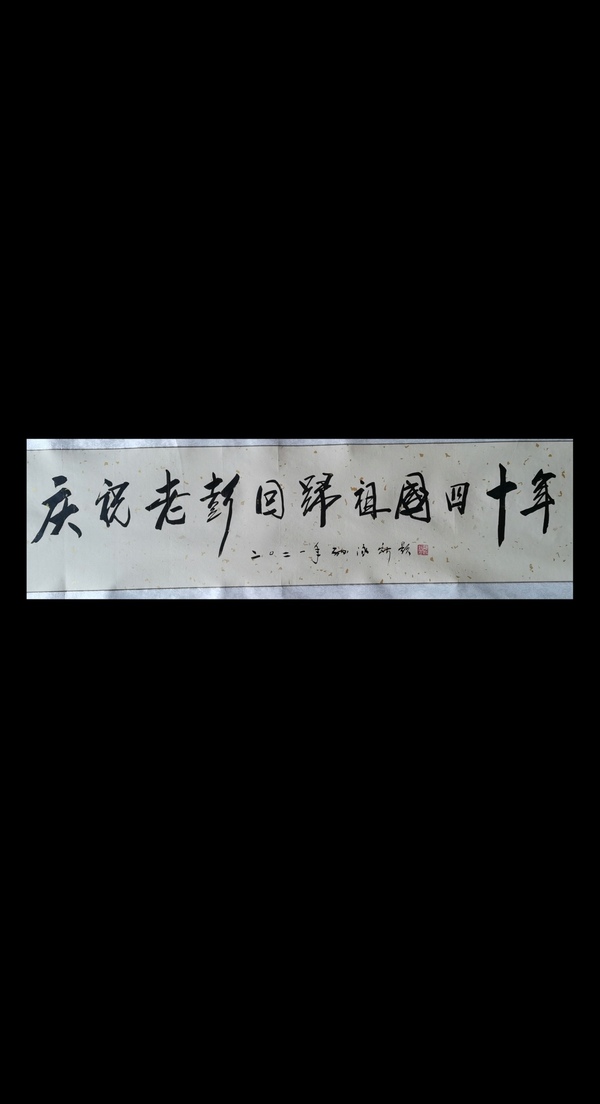 庆祝老彭回歸祖國四十年
二〇二一年 题